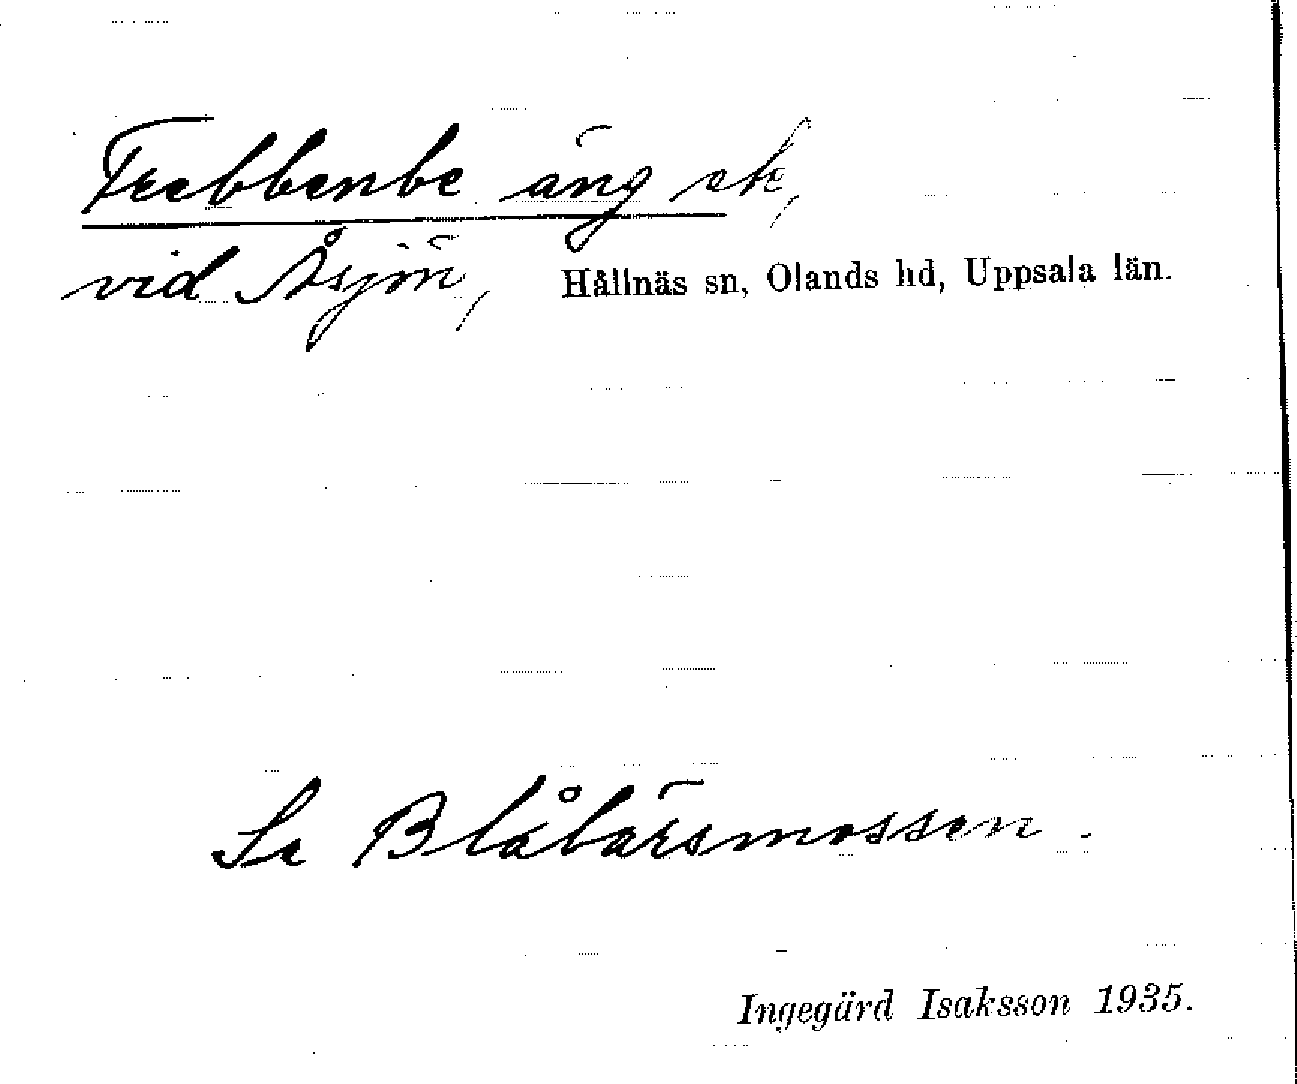 Trebbenbe äng sk,
vid Åsjön, Hållnäs sn, Olands hd, Uppsala län.
Se Blåbärsmossen.
Ingegärd Isaksson 1935.